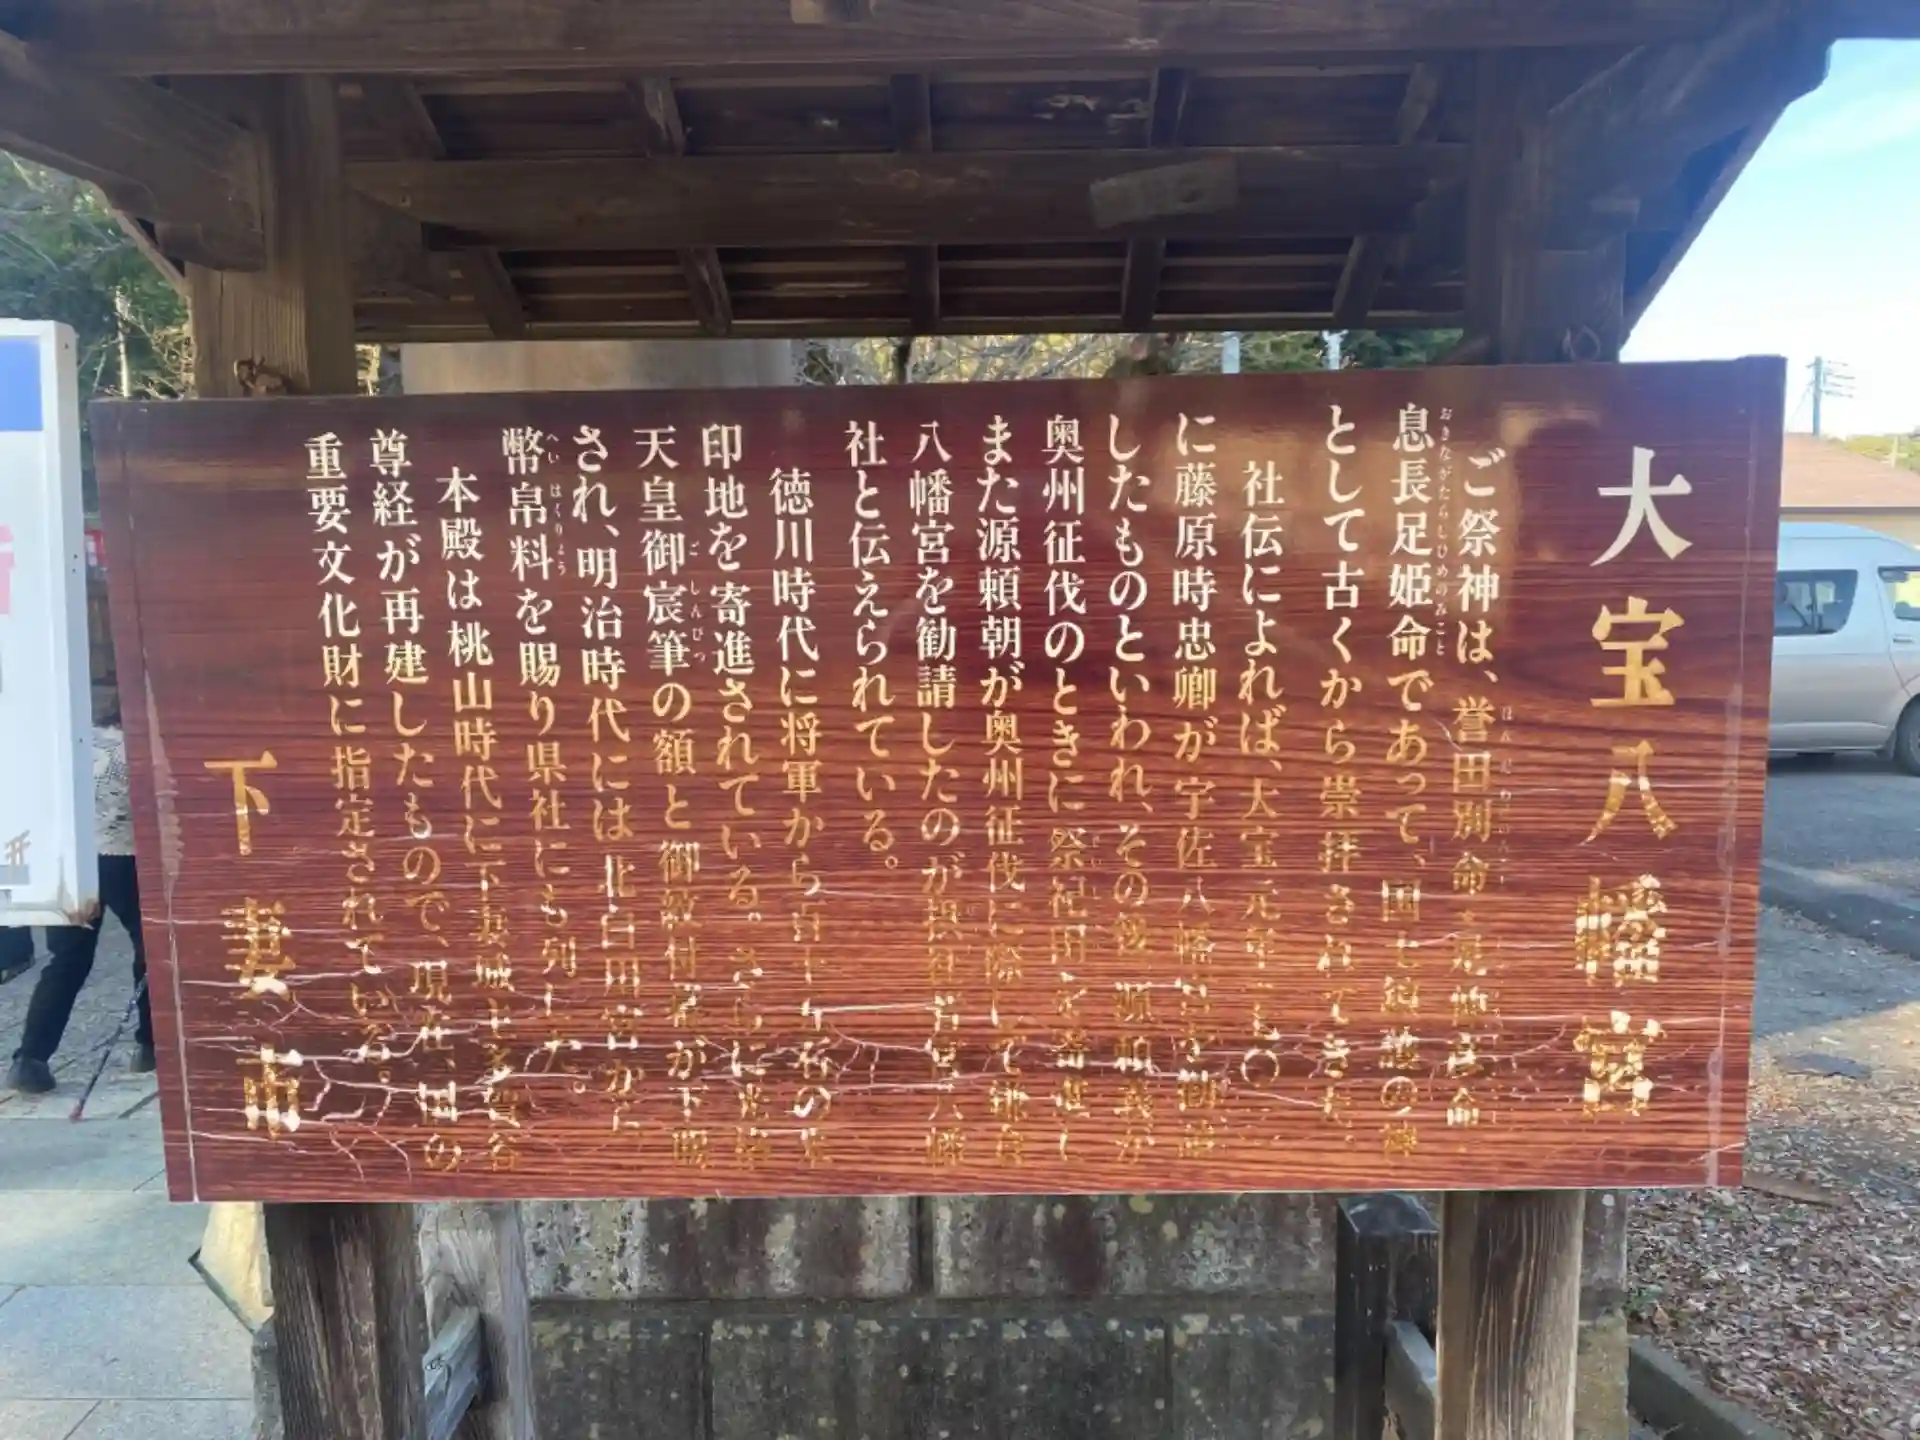 大宝八幡宮
ご祭神は、誉田別命・足仲彦命・
息長足姫命であって、国土鎮護の神
として古くから崇拝されてきた。
社伝によれば、大宝元年
に藤原時忠卿が宇佐八幡宮を勧請
したものといわれ、その後、源頼義が
奥州征伐のときに祭祀田を寄進し
また源頼朝が奥州征伐に際して
八幡宮を勧請したのが摂社若宮八幡
社と伝えられている。
徳川時代に将軍から百十五石の朱
印地を寄進されている。さらに光格
天皇御宸筆の額と御紋付幕が下賜
され、明治時代には北白川宮から
幣帛料を賜り県社にも列した。
本殿は桃山時代に下妻城主多賀谷
尊経が再建したもので、現在、国の
重要文化財に指定されている。
下妻市